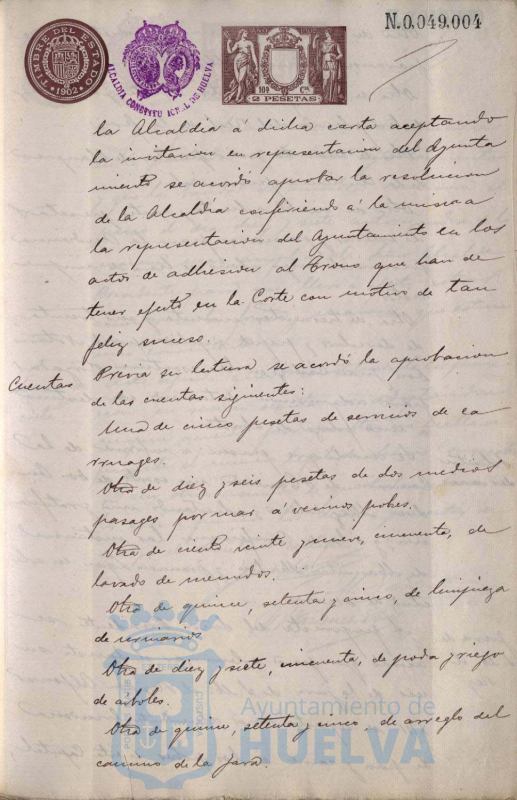 N.0.049.004
TIMBRE DEL ESTADO
1902
ALCALDIA CONSTITUCIONAL DE HUELVA
100 Cts
2 PESETAS
la Alcaldia á dicha carta aceptando
la invitacion en representacion del Ayunta
miento se acordó aprobar la resolucion
de la Alcaldía confiriendo á la misma
la representacion del Ayuntamiento en los
actos de adhesion al Trono que han de
tener efecto en la Corte con motivo de tan
feliz suceso.
Cuentas
Previa su lectura se acordó la aprobacion
de las cuentas siguientes:
Una de cinco pesetas de servicios de ca
rruages.
Otra de diez y seis pesetas de dos medios
pasages por mar á vecinos pobres.
Otra de ciento veinte y nueve, cincuenta, de
lavado de menudos.
Otra de quince, setenta y cinco, de limpieza
de urinarios.
Otra de diez y siete, cincuenta, de poda y riego
de arboles.
Otra de quince, setenta y cinco, de arreglo del
camino de la jara.
Ayuntamiento de
HUELVA